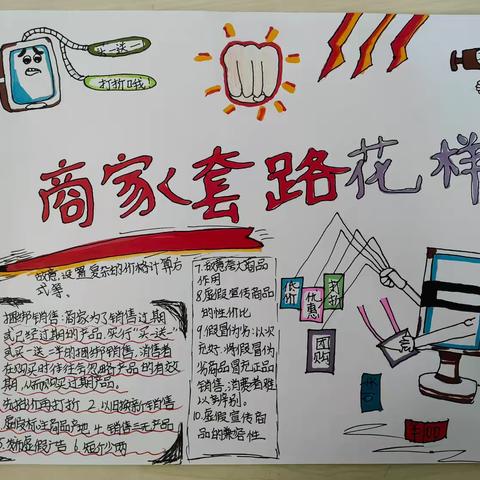 买一送一
打折哦
商家套路花样
故意设置复杂的价格计算方
式等.
捆绑销售:商家为了销售过期
或已经过期的产品,实行“买一送一”
或买一送二等的捆绑销售,消费者
在购买时往往会忽略产品的有效
期,从而购买过期产品。
先抬价再打折 2.以旧换新销售
虚假标注商品产地 4.销售三无产品
5.发布虚假广告 6.短斤少两
7.故意夸大商品
作用
8.虚假宣传商品
的性价比
9.假冒伪劣:以次
充好,将假冒伪
劣商品冒充正品
销售,消费者难
以辨别。
10.虚假宣传商
品的兼容性
低价
优惠
打折
团购